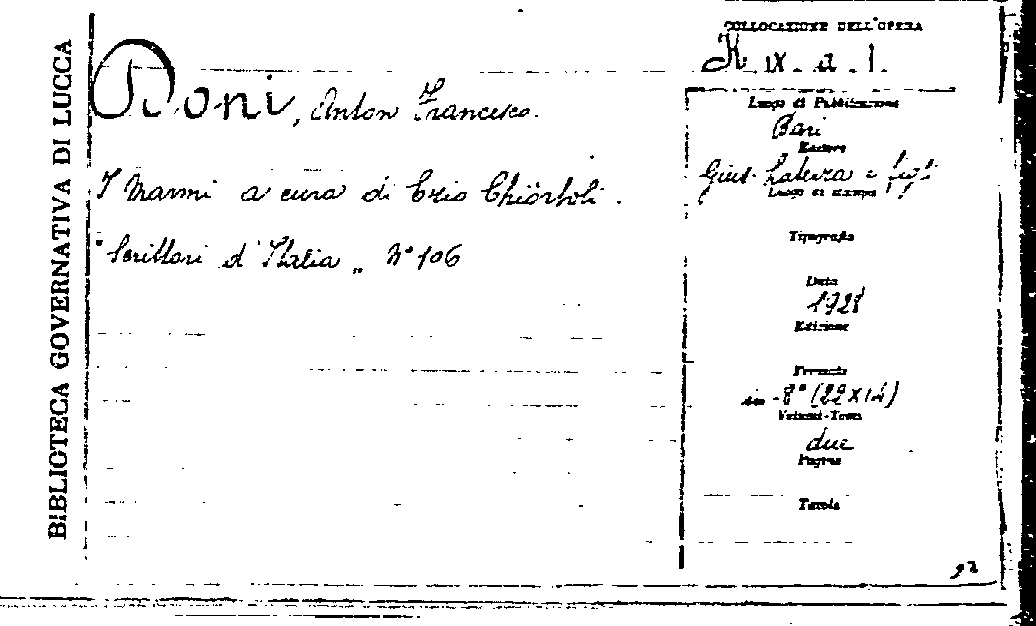 BIBLIOTECA GOVERNATIVA DI LUCCA
Doni, Anton Francesco.
I Marmi a cura di Ezio Chiòrboli.
"Scrittori d'Italia„ N° 106
COLLOCAZIONE DELL'OPERA
IX. a. 1.
Luogo di Pubblicazione
Bari
Editore
Gius. Laterza e figli
Luogo di stampa
Tipografia
Data
1928
Edizione
Formato
in-8° (22x14)
Volumi-Tomi
due
Pagine
Tavole